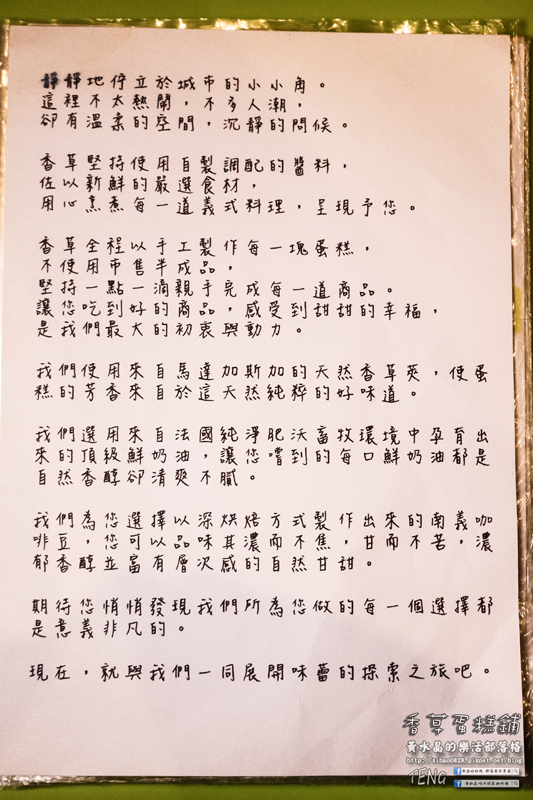 靜靜地佇立於城市的小小角。
這裡不太熱鬧，不多人潮，
卻有溫柔的空間，沉靜的問候。
香草堅持使用自製調配的醬料，
佐以新鮮的嚴選食材，
用心烹煮每一道義式料理，呈現予您。
香草全程以手工製作每一塊蛋糕，
不使用市售半成品，
堅持一點一滴親手完成每一道商品。
讓您吃到好的商品，感受到甜甜的幸福，
是我們最大的初衷與動力。
我們使用來自馬達加斯加的天然香草莢，使蛋
糕的芳香來自於這天然純粹的好味道。
我們選用來自法國純淨肥沃畜牧環境中孕育出
來的頂級鮮奶油，讓您嚐到的每口鮮奶油都是
自然香醇卻清爽不膩。
我們為您選擇以深烘焙方式製作出來的南義咖
啡豆，您可以品味其濃而不焦，甘而不苦，濃
郁香醇並富有層次感的自然甘甜。
期待您悄悄發現我們所為您做的每一個選擇都
是意義非凡的。
現在，就與我們一同展開味蕾的探索之旅吧。
香草蛋糕鋪
黃水晶的樂活部落格
http://sihan0828.pixnet.net/blog
TENG